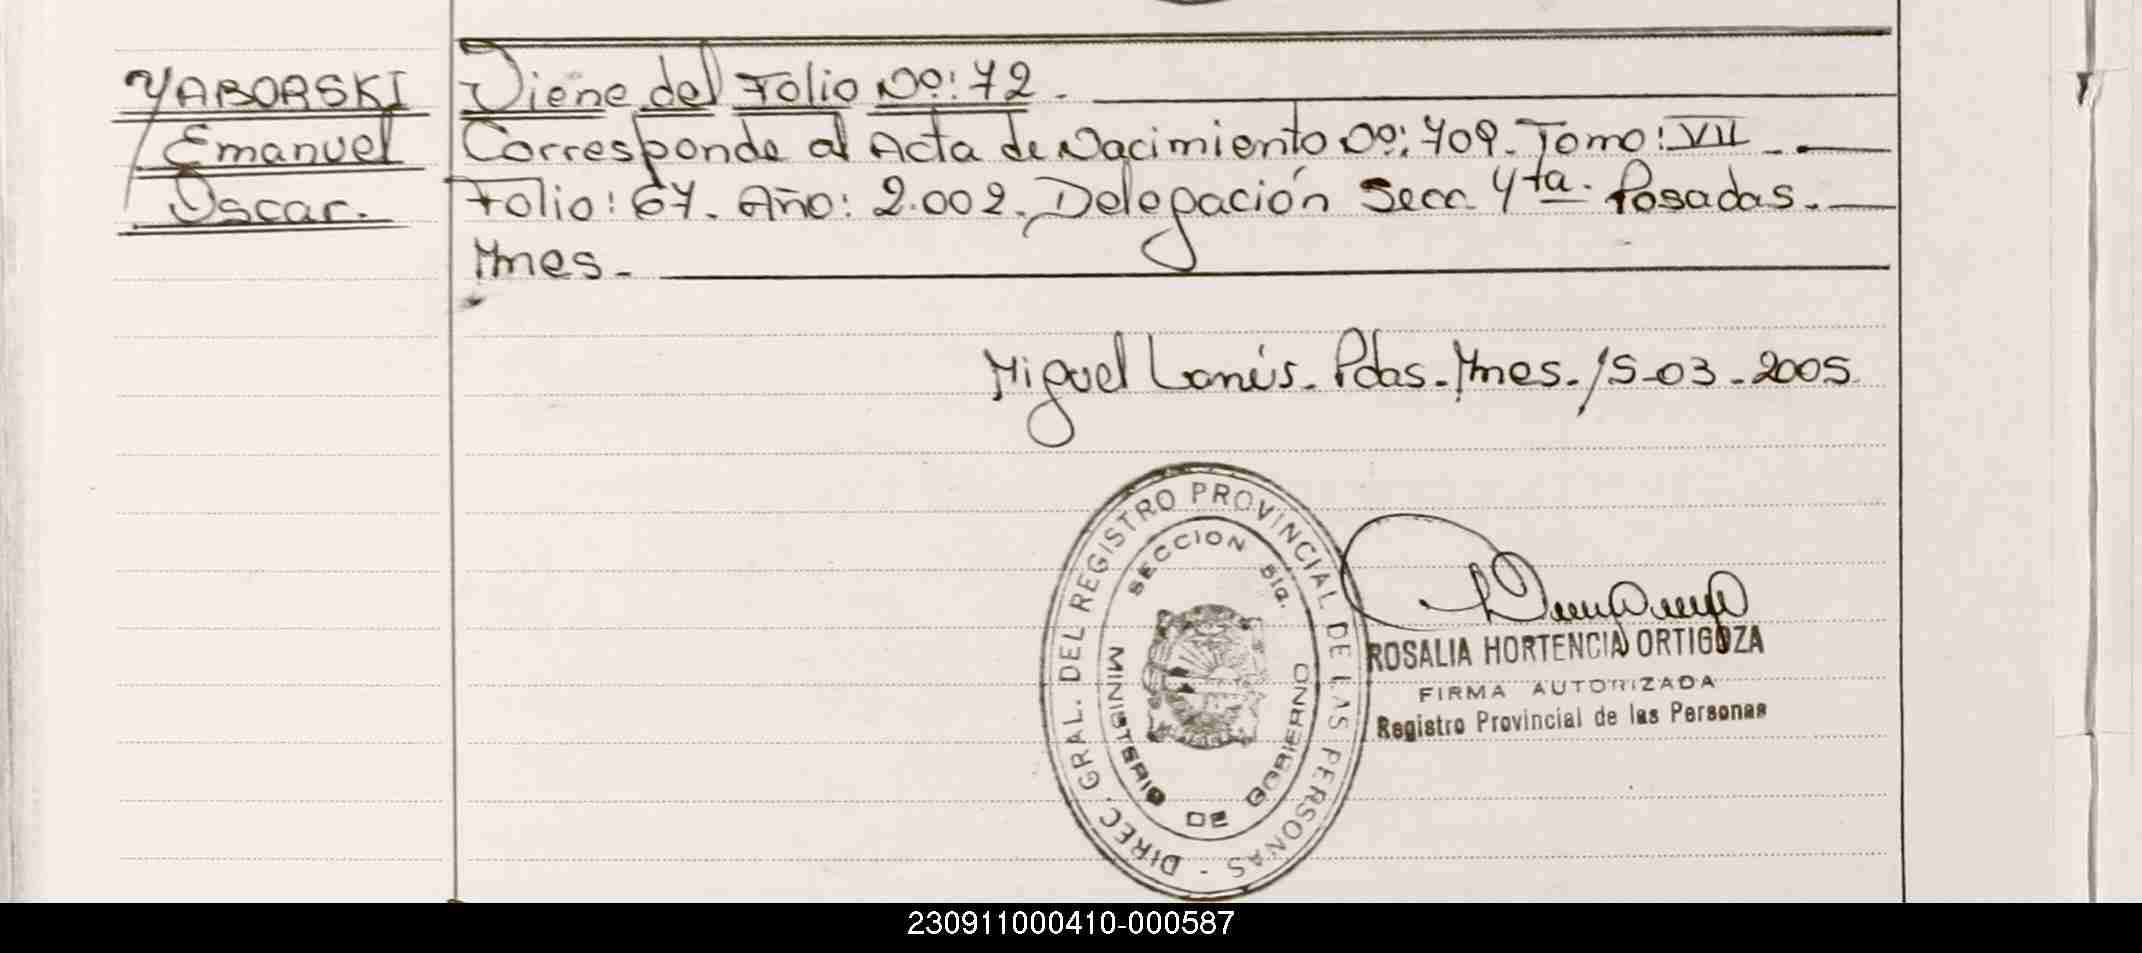 YABORSKI
Emanuel
Oscar.
Viene del Folio Nº: 72.
Corresponde al Acta de Nacimiento Nº: 709. Tomo: VII
Folio: 67. Año: 2.002. Delegación Secc. 4ta. Posadas.
Mnes.
Miguel Lanús. Pdas. Mnes. 15-03-2005
DIREC. GRAL. DEL REGISTRO PROVINCIAL DE LAS PERSONAS -
SECCION 5ta.
MINISTERIO DE GOBIERNO
ROSALIA HORTENCIA ORTIGOZA
FIRMA AUTORIZADA
Registro Provincial de las Personas
230911000410-000587